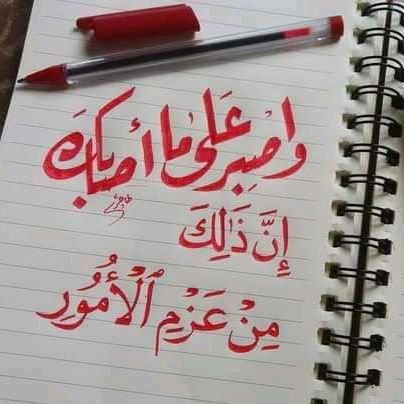 وَاصْبِر عَلَىٰ مَا أصَابَكَ
إِنَّ ذَٰلِكَ
مِنْ عَزْمِ ٱلْأُمُورِ